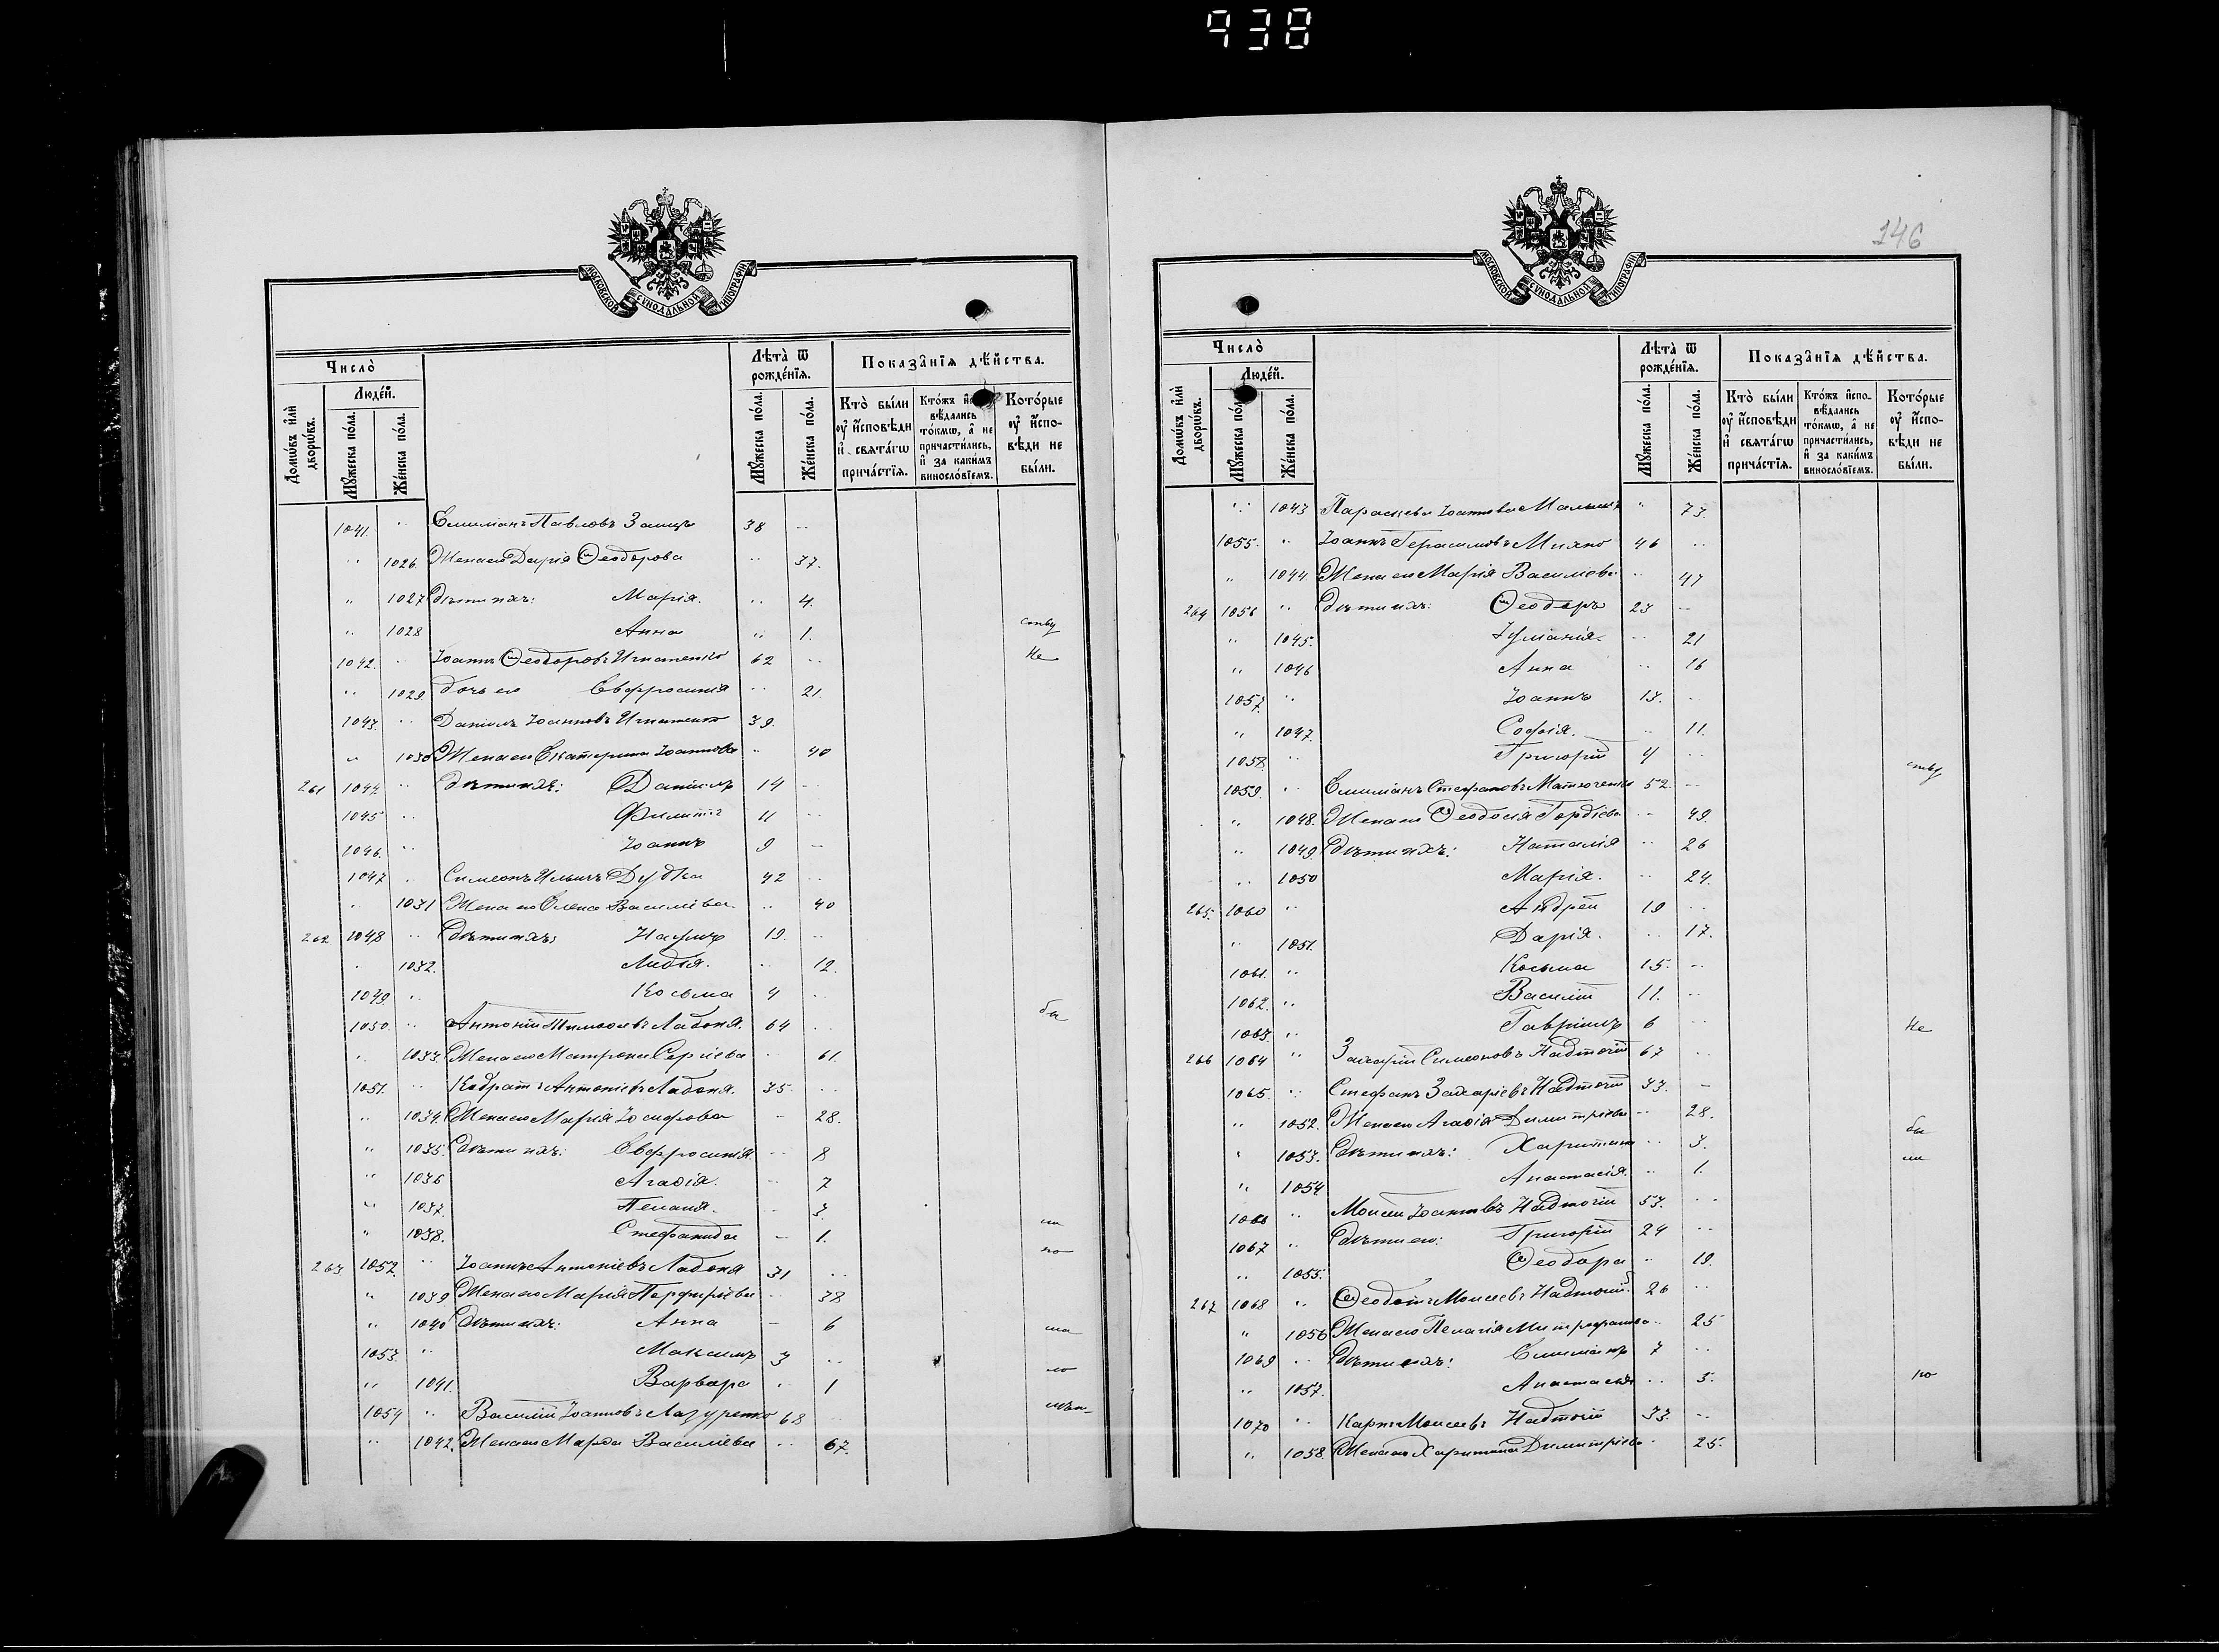 938
МОСКОВСКОЙ СѴНОДАЛЬНОЙ ТИПОГРАФІИ
Число̀
Лѣта̀ ѿ рожде́нїѧ.
Показа̑нїѧ дѣ́йства.
Люде́й.
Домѡ́въ и҆лѝ дворѡ́въ.
Мꙋ́жеска по́ла.
Же́нска по́ла.
Мꙋ́жеска по́ла.
Же́нска по́ла.
Кто̀ бы́ли ᲂу҆ и҆́сповѣди и҆ свѧта́гѡ прича́стїѧ.
Кото́рые ᲂу҆ и҆́спо-вѣди не бы́ли.
1041. " Емиліанъ Павловъ Заецъ 38 "
" 1026. Жена его Дарія Ѳеодорова " 37.
" 1027 Дѣти ихъ: Марія. " 4.
" 1028 Анна " 1.
1042. " Іоаннъ Ѳеодоровъ Игнатенко 62 " Не
" 1029 дочь его Евфросинія " 21.
1043. " Даніилъ Іоанновъ Игнатенко 39. "
" 1030 Жена его Екатерина Іоаннова " 40
261 1044. " Дѣти ихъ: Даніилъ 14 "
1045 " Филиппъ 11 "
1046. " Іоаннъ 9 "
1047 " Симеонъ Ильичъ Дудка 42 "
" 1031 Жена его Елена Василіева " 40
262 1048 " Дѣти ихъ: Наумъ 19. "
" 1032. Лидія. " 12.
1049. " Косьма 4 "
1050. " Антоній Тимоѳеевъ Ладоня. 64 " бы
" 1033. Жена его Матрона Сергіева " 61.
1051. " Кодратъ Антоніевъ Ладоня. 35 "
" 1034. Жена его Марія Іосифова " 28.
" 1035. Дѣти ихъ: Евфросинія. " 8
" 1036 Агаѳія. " 7
" 1037. Пелагія. " 3.
" 1038. Стефанида " 1. ли
263 1052. " Іоаннъ Антоніевъ Ладоня 31 " по
" 1039 Жена его Марія Порфиріева " 38
" 1040 Дѣти ихъ: Анна " 6
1053. " Максимъ 3 "
" 1041. Варвара " 1
1054 " Василій Іоанновъ Лазуренко 68 "
" 1042. Жена его Марѳа Василіева " 67.
146
МОСКОВСКОЙ СѴНОДАЛЬНОЙ ТИПОГРАФІИ
Число̀
Лѣта̀ ѿ рожде́нїѧ.
Показа̑нїѧ дѣ́йства.
Люде́й.
Домѡ́въ и҆лѝ дворѡ́въ.
Мꙋ́жеска по́ла.
Же́нска по́ла.
Мꙋ́жеска по́ла.
Же́нска по́ла.
Кто̀ бы́ли ᲂу҆ и҆́сповѣди и҆ свѧта́гѡ прича́стїѧ.
Кто́жъ и҆спо-вѣ́дались то́кмѡ, а҆ не причасти́лись, и҆ за каки́мъ виносло́вїемъ.
Кото́рые ᲂу҆ и҆́спо-вѣди не бы́ли.
" 1043 Параскева Іоаннова " 73.
1055. " Іоаннъ Герасимовъ 46 "
" 1044 Жена его Марія Василіева " 47
264 1056 " Дѣти ихъ: Ѳеодоръ 23 "
" 1045. Іуліанія. " 21
" 1046 Анна " 16
1057. " Іоаннъ 13. "
" 1047. Софія. " 11.
1058. " Григорій 4 "
1059. " Емиліанъ Стефановъ 52. "
" 1048. Жена его Ѳеодосія Гордіева " 49.
" 1049. Дѣти ихъ: Наталія " 26
" 1050 Марія. " 24.
265. 1060 " Андрей 19 "
" 1051. Дарія. " 17.
1061. " Косьма 15. "
1062. " Василій 11. "
1063. " Гавріилъ 6 " Не
266 1064 " Захарій Симеоновъ Надточій 67 "
1065. " Стефанъ Захаріевъ Надточій 33. "
" 1052. Жена его Агаѳія Димитріева " 28.
" 1053. Дѣти ихъ: Харитина " 3. бы
" 1054 Анастасія. " 1. ли
1066 " Моисей Іоанновъ Надточій 53. "
1067 " Дѣти его: Григорій 24 "
" 1055. Ѳеодора " 19.
267 1068 " Ѳеодотъ Моисеевъ Надточій. 26 "
" 1056 Жена его Пелагія Митрофанова " 25
1069 " Дѣти ихъ: Емиліанъ 7 "
" 1057. Анастасія " 5. по
1070 " Карпъ Моисеевъ Надточій 33. "
" 1058. Жена его Харитина Димитріева " 25.